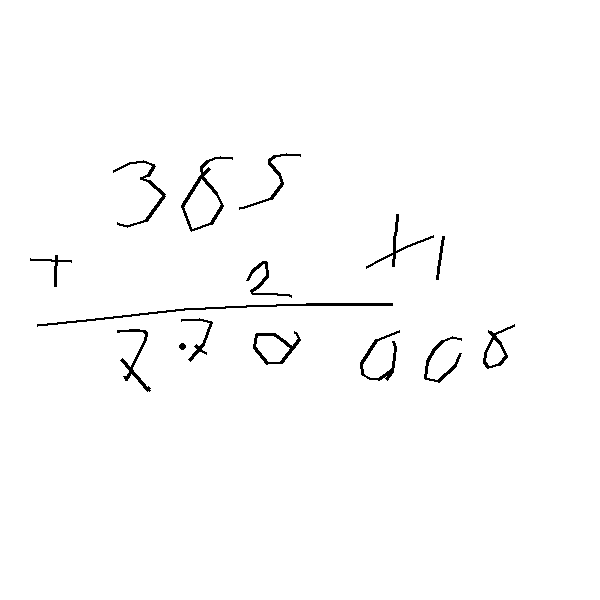 385
+ 2 +1
7.70 000